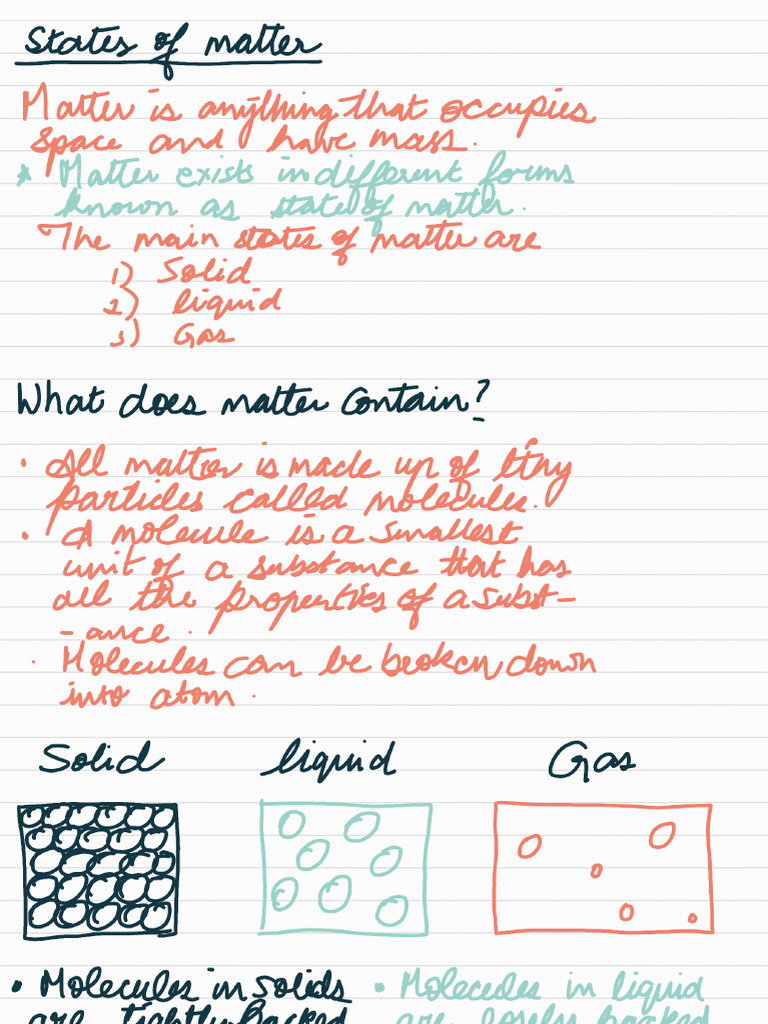 States of matter
Matter is anything that occupies
space and have mass.
* Matter exists in different forms
known as state of matter.
The main states of matter are
1) Solid
2) liquid
3) Gas
What does matter contain?
• All matter is made up of tiny
particles called molecules.
• A molecule is a smallest
unit of a substance that has
all the properties of a subst-
-ance.
• Molecules can be broken down
into atom.
Solid liquid Gas
• Molecules in solids • Molecules in liquid
are tightly packed are loosely packed